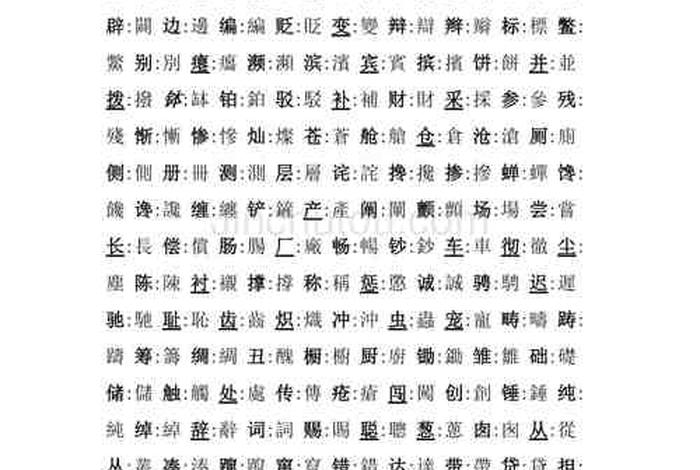 辟:闢 边:邊 编:編 贬:貶 变:變 辩:辯 辫:辮 标:標 鳖:
鱉 别:別 瘪:癟 濒:瀕 滨:濱 宾:賓 摈:擯 饼:餅 并:並
拨:撥 钵:缽 铂:鉑 驳:駁 补:補 财:財 采:採 参:參 残:
殘 惭:慚 惨:慘 灿:燦 苍:蒼 舱:艙 仓:倉 沧:滄 厕:廁
侧:側 册:冊 测:測 层:層 诧:詫 搀:攙 掺:摻 蝉:蟬 馋:
饞 谗:讒 缠:纏 铲:鏟 产:產 阐:闡 颤:顫 场:場 尝:嘗
长:長 偿:償 肠:腸 厂:廠 畅:暢 钞:鈔 车:車 彻:徹 尘:
塵 陈:陳 衬:襯 撑:撐 称:稱 惩:懲 诚:誠 骋:騁 迟:遲
驰:馳 耻:恥 齿:齒 炽:熾 冲:沖 虫:蟲 宠:寵 畴:疇 踌:
躊 筹:籌 绸:綢 丑:醜 橱:櫥 厨:廚 锄:鋤 雏:雛 础:礎
储:儲 触:觸 处:處 传:傳 疮:瘡 闯:闖 创:創 锤:錘 纯:
純 绰:綽 辞:辭 词:詞 赐:賜 聪:聰 葱:蔥 囱:囪 从:從
丛:叢 凑:湊 蹿:躥 窜:竄 错:錯 达:達 带:帶 贷:貸 担: